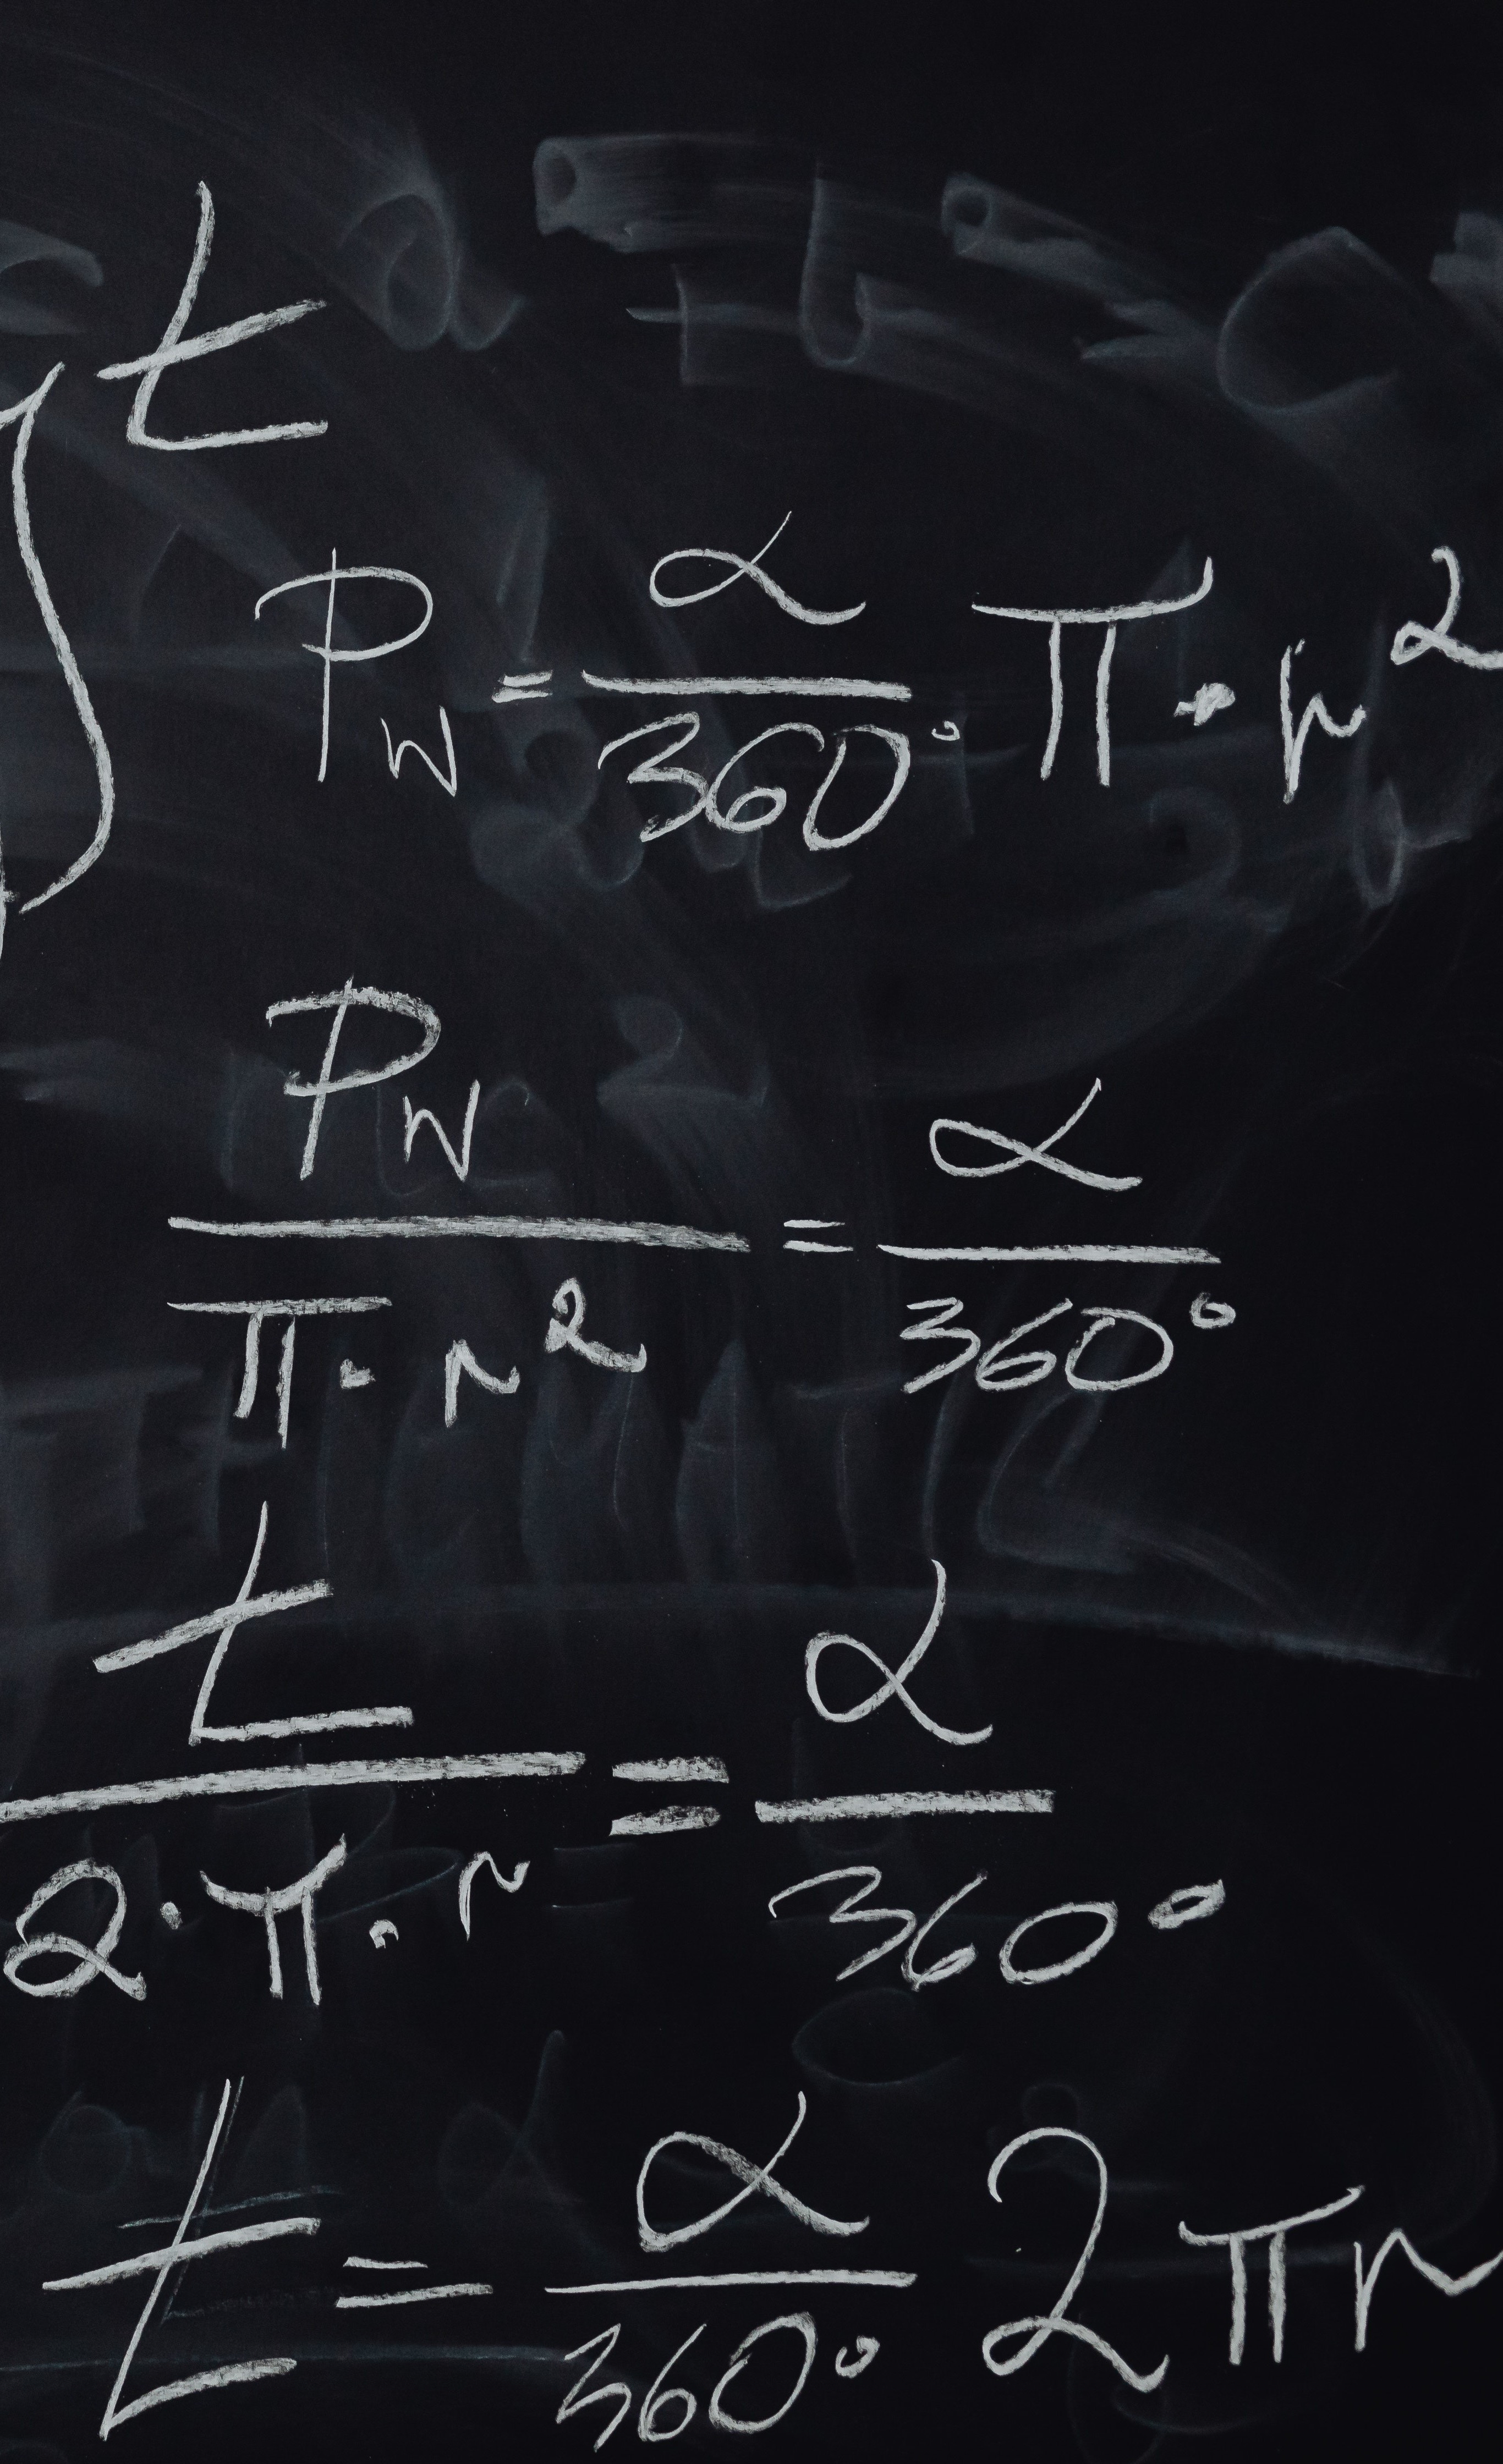 Ł
P_W = α/360° π · r²
P_W/(π · r²) = α/360°
Ł/(2 · π · r) = α/360°
Ł = α/360° 2πr